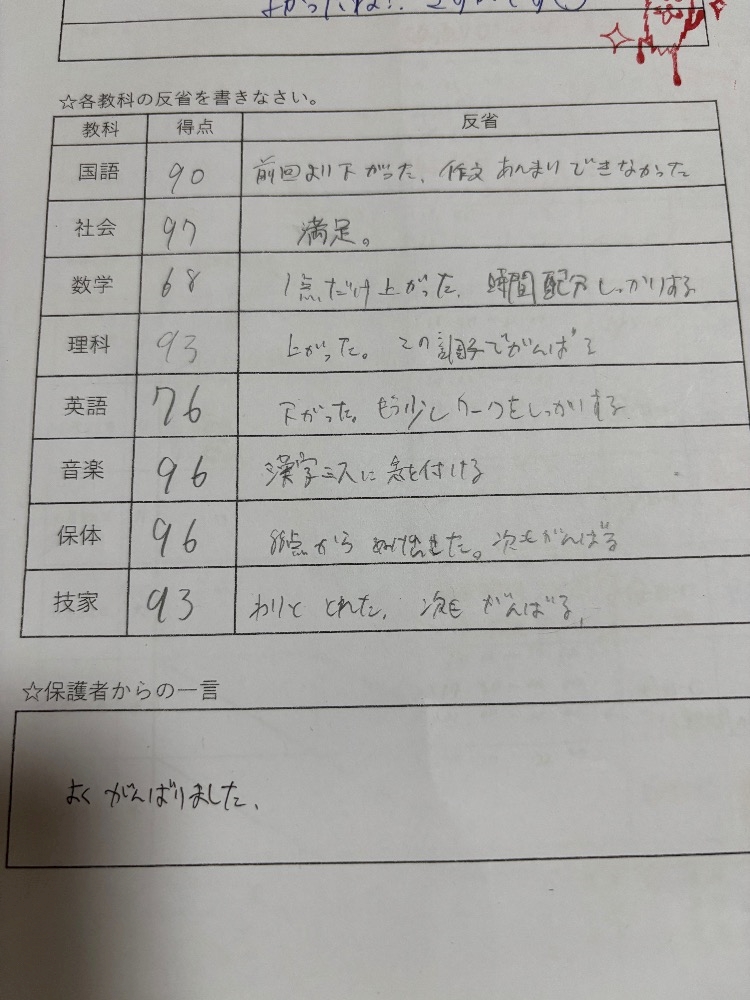 よかったね!! さすがです
☆各教科の反省を書きなさい。
教科 得点 反省
国語 90 前回より下がった、作文あんまりできなかった
社会 97 満足。
数学 68 1点だけ上がった、時間配分しっかりする
理科 93 上がった。この調子でがんばる
英語 76 下がった。もう少しワークをしっかりする
音楽 96 漢字ミスに気を付ける
保体 96 点から抜け出せた。次もがんばる
技家 93 わりととれた、次もがんばる、
☆保護者からの一言
よくがんばりました、